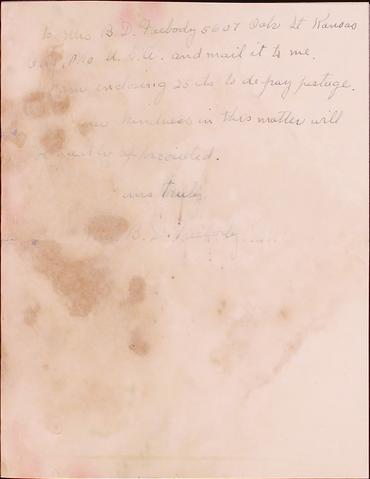 to Mrs B. D. Peabody 5607 Oak St Kansas
City, Mo U. S. A. and mail it to me.
I am enclosing 25 cts to de-pay postage.
Your kindness in this matter will
appreciated.
truly
B. D. Peabody